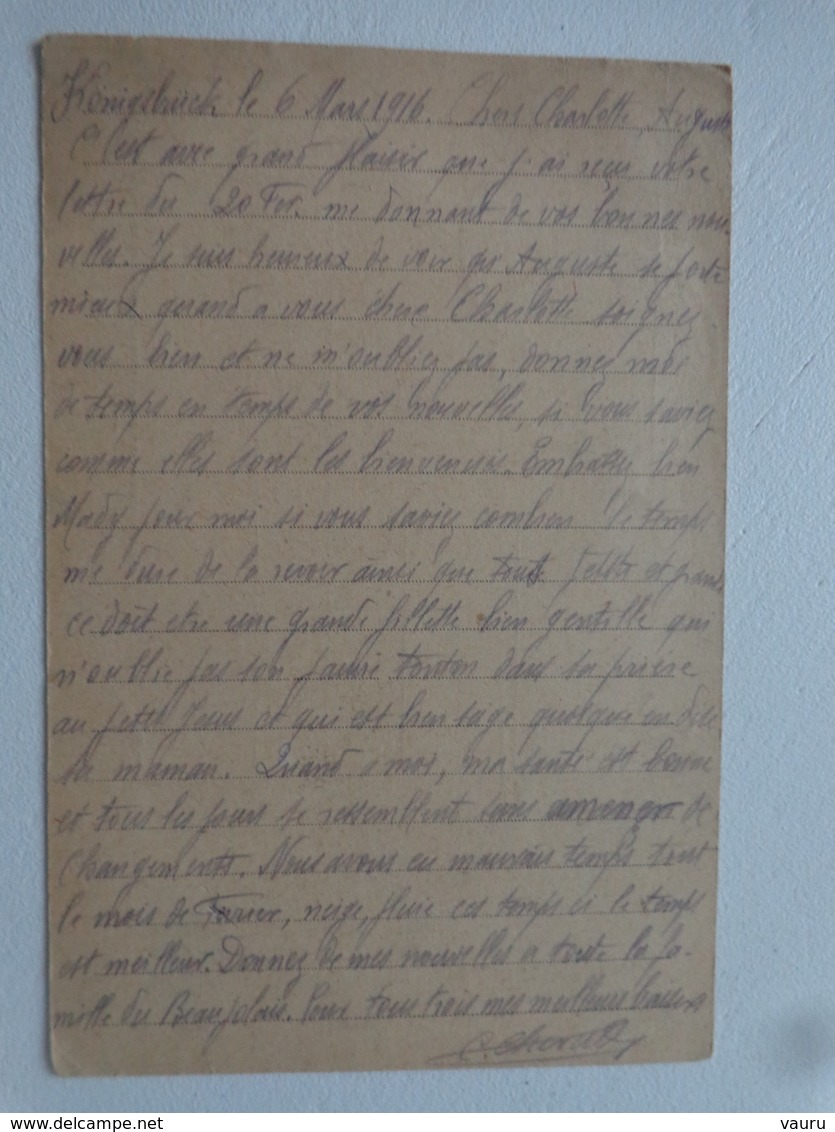 Königsbrück le 6 Mars 1916. Chers Charlotte, Auguste
C'est avec grand plaisir que j'ai reçus votre
lettre du 20 Fer. me donnant de vos bonnes nou
velles. Je suis heureux de voir que Auguste se porte
mieux quand a vous chère Charlotte soignez
vous bien et ne m'oubliez pas, donnez moi
de temps en temps de vos nouvelles, si vous saviez
comme elles sont les bienvenues. Embrassez bien
Mady pour moi si vous saviez combien le temps
me dure de la revoir ainsi que tous petits et grands
ce doit etre une grande fillette bien gentille qui
n'oublie pas son pauvre tonton dans sa prière
au petit Jesus et qui est bien sage quoique en dise
sa maman. Quand a moi, ma santé est bonne
et tous les jours se ressemblent sans amener de
changements. Nous avons eu mauvais temps tout
le mois de Fevrier, neige, pluie ces temps ci le temps
est meilleur. Donnez de mes nouvelles a toute la fa-
mille du Beaujolais. Pour tous trois mes meilleurs baisers